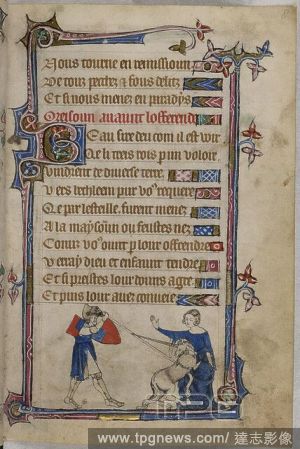 Nous tourne en remissioun
De touz pecchez & fous delitz
Et si nous menez en paradys
Oreisoun avaunt l'offerend
Beau sire deu com il est voir
Qe li trees rois p un voloir
Vindrent de diverse terre
Vers bethleem pur vo9 requere
Qe par lesteille furent menez
A la maysoun ou feustes nez
Come vo9 vunt p lour offrendre
Veray dieu et enfaunt tendre
Et si preistes lour douns a gre
Et puis lour avez
www.tpgnews.com/ 達志影像